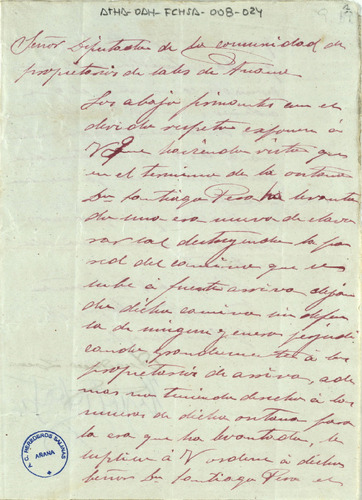 ATHA-DAH-FCHSA-008-024
Señor Diputado de la comunidad de
propietarios de sales de Añana
Los abajo firmantes con el
devido respeto esponen á
V. Que haviendo visto que
en el termino de la ontana
Dn Santiago Pesa ha levanta
do una era nueva de elavo
rar sal destruyendo la pa
red del camino que se
sube á fuente arriva dejan
do dicho camino sin defen
sa de ningun genero perjudi
cando grandemente á los
propietarios de arriva, ade
mas no teniendo derecho á las
mueras de dicha ontana para
la era que ha levantado, le
suplica á V ordene á dicho
señor Dn Santiago Pesa el
F. C. HEREDEROS SALINAS
AÑANA